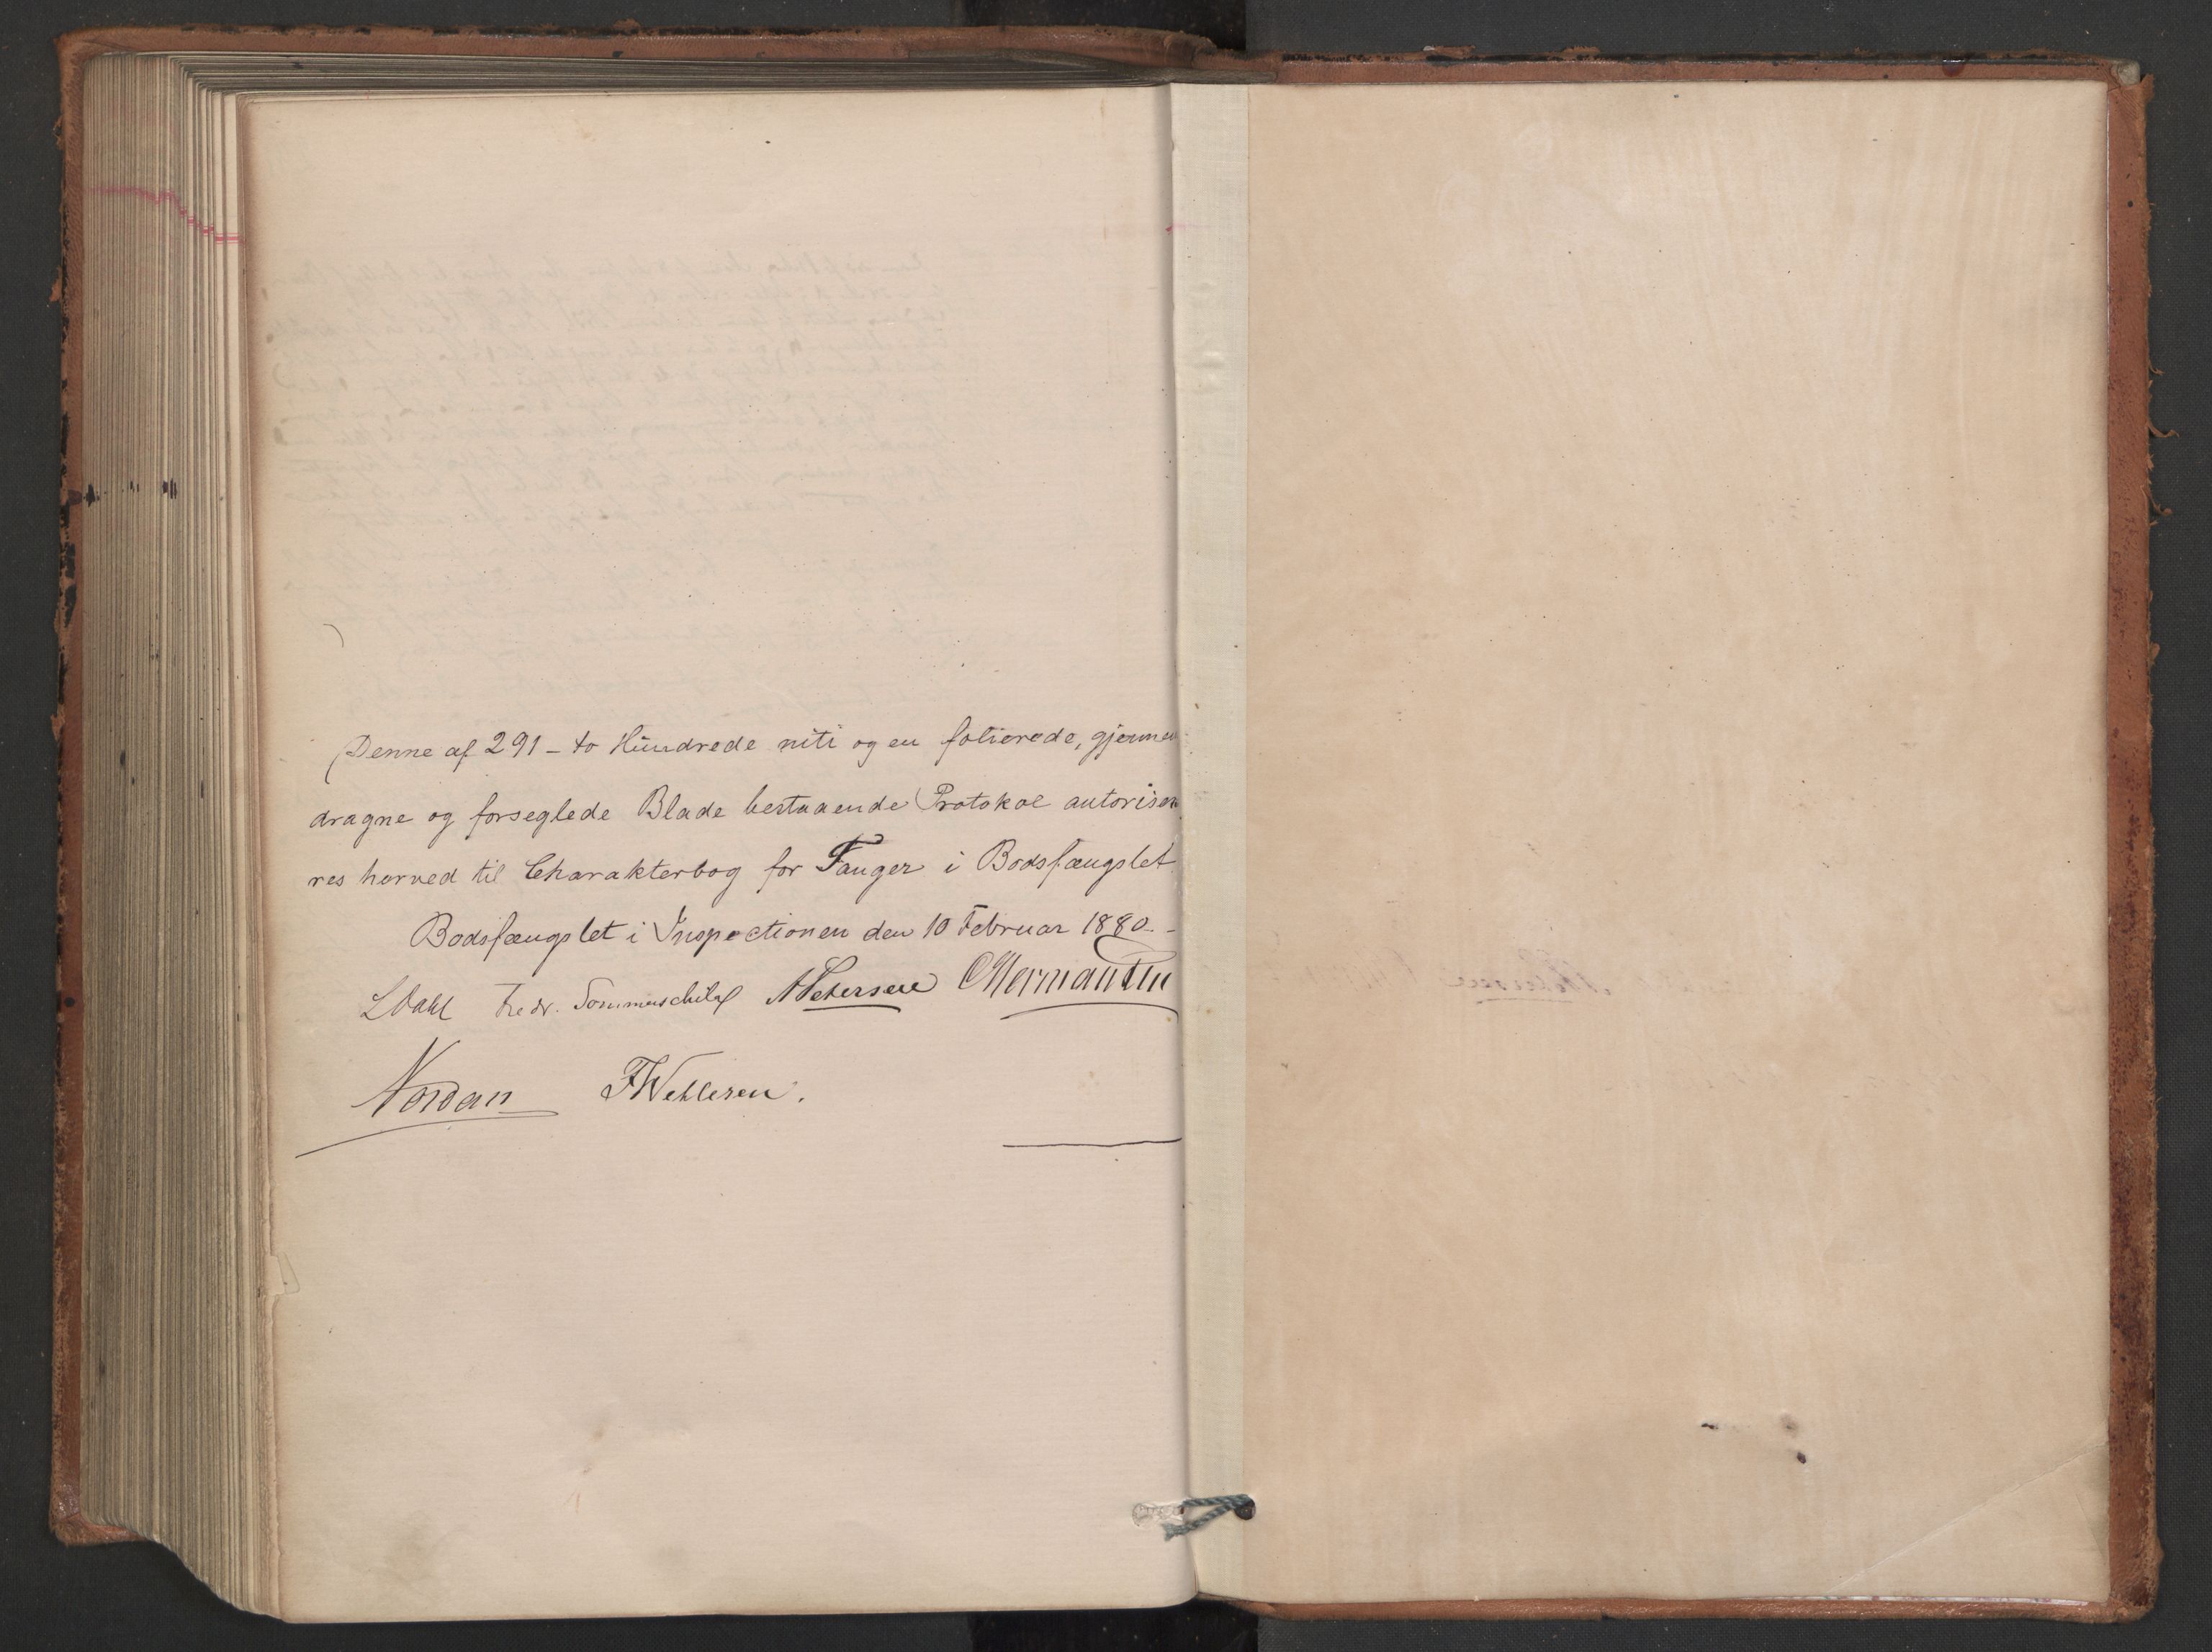 Denne af 291 - to Hundrede niti og en folierede, gjennem
dragne og forseglede Blade bestaaende Protokol autorise
res herved til Charakterbog for Fanger i Bodsfængslet
Bodsfængslet i Inspectionen den 10 Februar 1880. -
L Dahl Fredr. Sommerschild A Petersen
Nordan